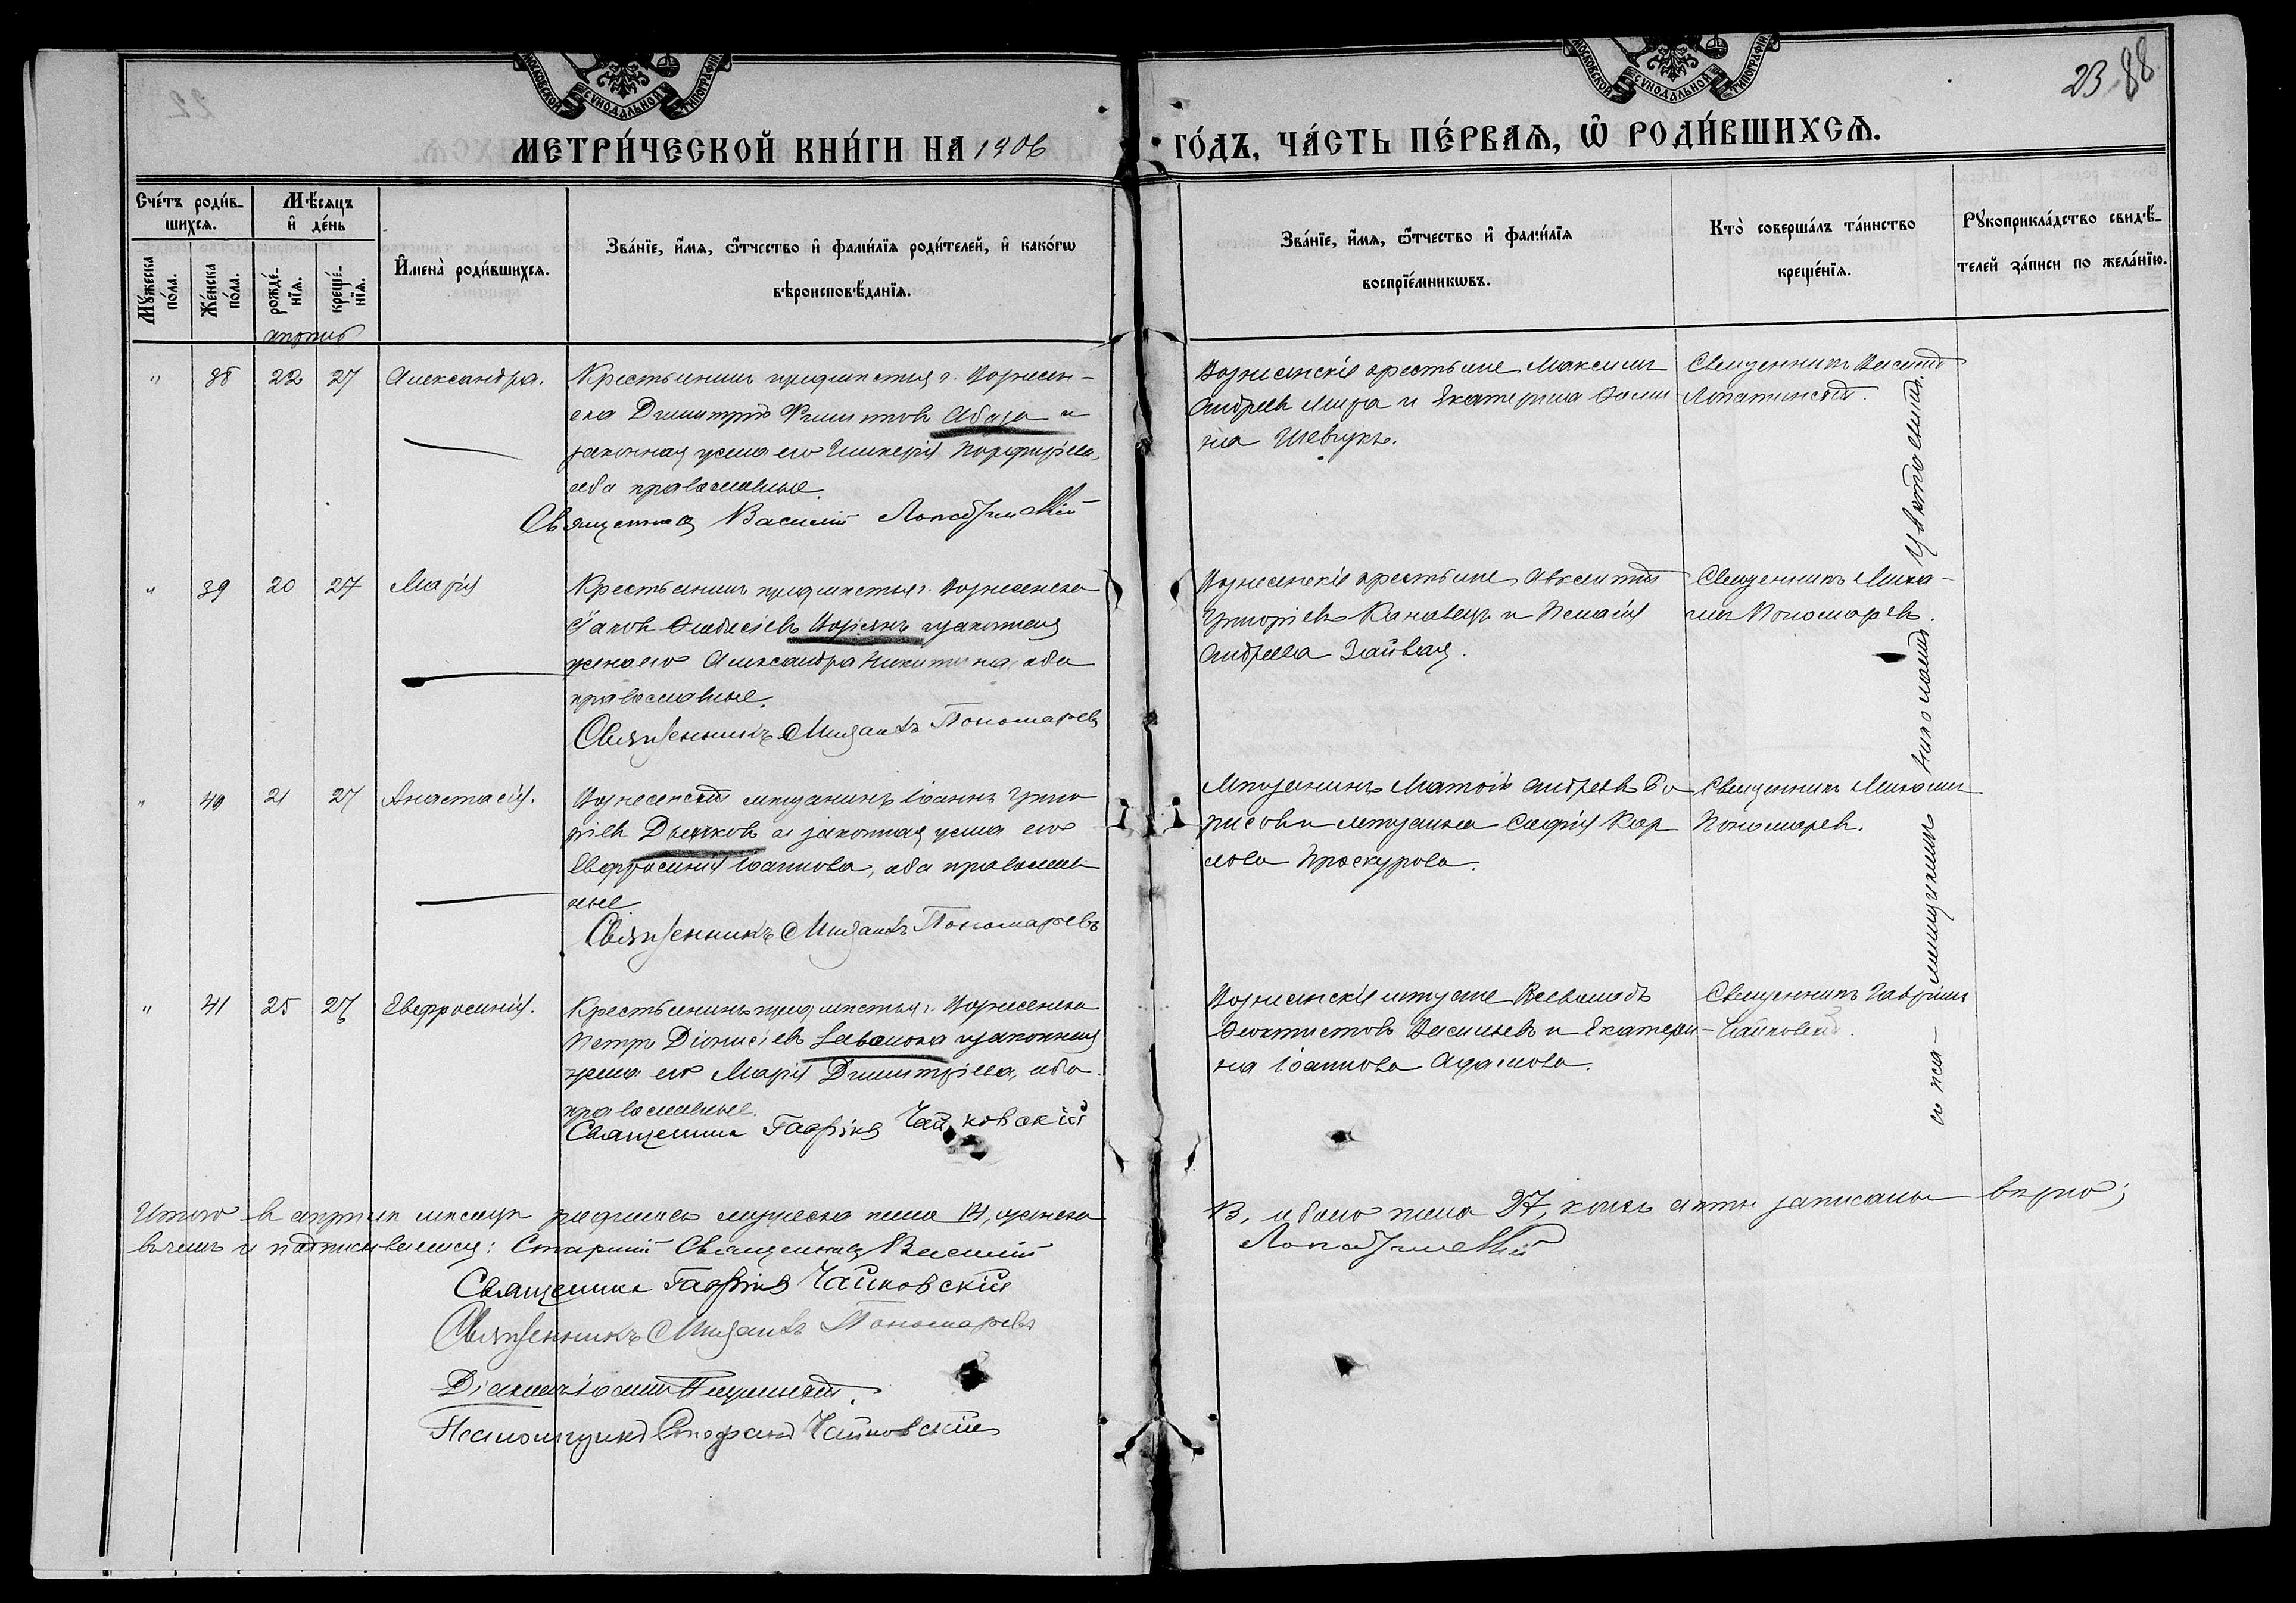 МОСКОВСКОЙ СѴНОДАЛЬНОЙ ТИПОГРАФІИ
МОСКОВСКОЙ СѴНОДАЛЬНОЙ ТИПОГРАФІИ
23 88
МЕТРИ́ЧЕСКОЙ КНИ́ГИ НА 1906
ГО́ДЪ, ЧА́СТЬ ПЕ́РВАЯ, Ѡ҆ РОДИ́ВШИХСЯ.
Сче́тъ роди́в-
шихся.
Мѣ́сяцъ
и҆ де́нь
И҆мена̀ роди́вшихся.
Зва́нїе, и҆́мя, ѻ҆́тчество и҆ фами́лїя роди́телей, и҆ како́гѡ
вѣроисповѣ́данїя.
Зва́нїе, и҆́мя, ѻ҆́тчество и҆ фами́лїя
воспрїе́мникѡвъ.
Кто̀ соверша́лъ та́инство
креще́нїя.
Рꙋкоприкла́дство свидѣ́-
телей за́писи по жела́нїю.
Мꙋ́жеска
по́ла.
Же́нска
по́ла.
рожде́-
нїя.
креще́-
нїя.
апрѣль
" 38 22 27 Александра.
Крестьянинъ предмѣстья г. Вознесен-
ска Димитрій Филиповъ Абаза и
законная жена его Гликерія Порфирьева,
оба православные.
Священникъ Василій Лопатинскій
Вознесенскіе крестьяне Максимъ
Андреевъ Мира и Екатерина
на Шевчукъ.
Священникъ Василій
Лопатинскій.
" 39 20 27 Марія
Крестьянинъ предмѣстья г. Вознесенска
Іаковъ и законная
жена его Александра Никитина, оба
православные.
Священникъ Михаилъ Пономаревъ
Вознесенскіе крестьяне Авксентій
Григорьевъ Канавецъ и Пелагія
Андреева
Священникъ Миха-
илъ Пономаревъ.
" 40 21 27 Анастасія.
Вознесенскій мѣщанинъ Іоаннъ Григо
ріевъ Дьячковъ и законная жена его
Евфросинія Іоаннова, оба православ
ные
Священникъ Михаилъ Пономаревъ
Мѣщанинъ Матѳій Андреевъ Бо
рисовъ и мѣщанка Софія Кар
пова Проскурова.
Священникъ Михаилъ
Пономаревъ.
" 41 25 27 Евфросинія.
Крестьянинъ предмѣстья г. Вознесенска
Петръ Діонисіевъ и законная
жена его Марія Димитріева, оба
православные.
Священникъ Гавріилъ Чайковскій
Вознесенскіе мѣщане Всеволодъ
Ѳеоктистовъ Васильевъ и Екатери-
на Іоаннова Адамова.
Священникъ Гавріилъ
Чайковскій.
съ пса- ломщикомъ Николаемъ
Итого въ апрѣлѣ мѣсяцѣ родилось мужеска пола 14, женска
13, обоего пола 27, коихъ акты записаны вѣрно;
въ чемъ и подписываемся: Старшій Священникъ Василій
Лопатинскій
Священникъ Гавріилъ Чайковскій
Священникъ Михаилъ Пономаревъ
Діаконъ Іоаннъ
Псаломщикъ Стефанъ Чайковскій